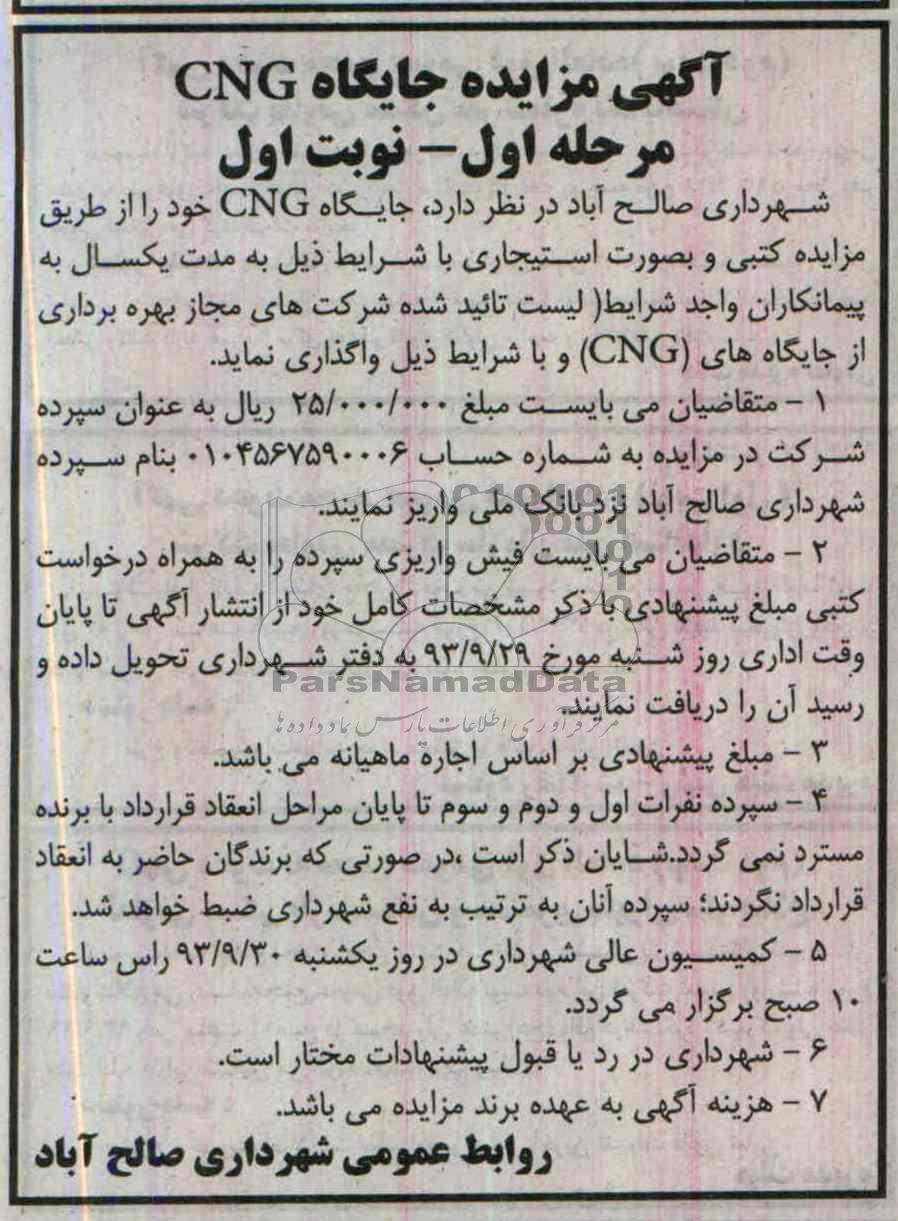 آگهی مزایده جایگاه CNG
مرحله اول- نوبت اول
شهرداری صالح آباد در نظر دارد، جایگاه CNG خود را از طریق
مزایده کتبی و بصورت استیجاری با شرایط ذیل به مدت یکسال به
پیمانکاران واجد شرایط( لیست تائید شده شرکت های مجاز بهره برداری
از جایگاه های (CNG) و با شرایط ذیل واگذاری نماید.
۱ - متقاضیان می بایست مبلغ ۲۵/۰۰۰/۰۰۰ ریال به عنوان سپرده
شرکت در مزایده به شماره حساب ۰۱۰۴۵۶۷۵۹۰۰۰۶ بنام سپرده
شهرداری صالح آباد نزد بانک ملی واریز نمایند.
۲ - متقاضیان می بایست فیش واریزی سپرده را به همراه درخواست
کتبی مبلغ پیشنهادی با ذکر مشخصات کامل خود از انتشار آگهی تا پایان
وقت اداری روز شنبه مورخ ۹۳/۹/۲۹ به دفتر شهرداری تحویل داده و
ParsNamadData
رسید آن را دریافت نمایند.
مرکز فرآوری اطلاعات پارس نماد داده ها
۳ - مبلغ پیشنهادی بر اساس اجاره ماهیانه می باشد.
۴ - سپرده نفرات اول و دوم و سوم تا پایان مراحل انعقاد قرارداد با برنده
مسترد نمی گردد.شایان ذکر است ،در صورتی که برندگان حاضر به انعقاد
قرارداد نگردند؛ سپرده آنان به ترتیب به نفع شهرداری ضبط خواهد شد.
۵ - کمیسیون عالی شهرداری در روز یکشنبه ۹۳/۹/۳۰ راس ساعت
۱۰ صبح برگزار می گردد.
۶ - شهرداری در رد یا قبول پیشنهادات مختار است.
۷ - هزینه آگهی به عهده برند مزایده می باشد.
روابط عمومی شهرداری صالح آباد